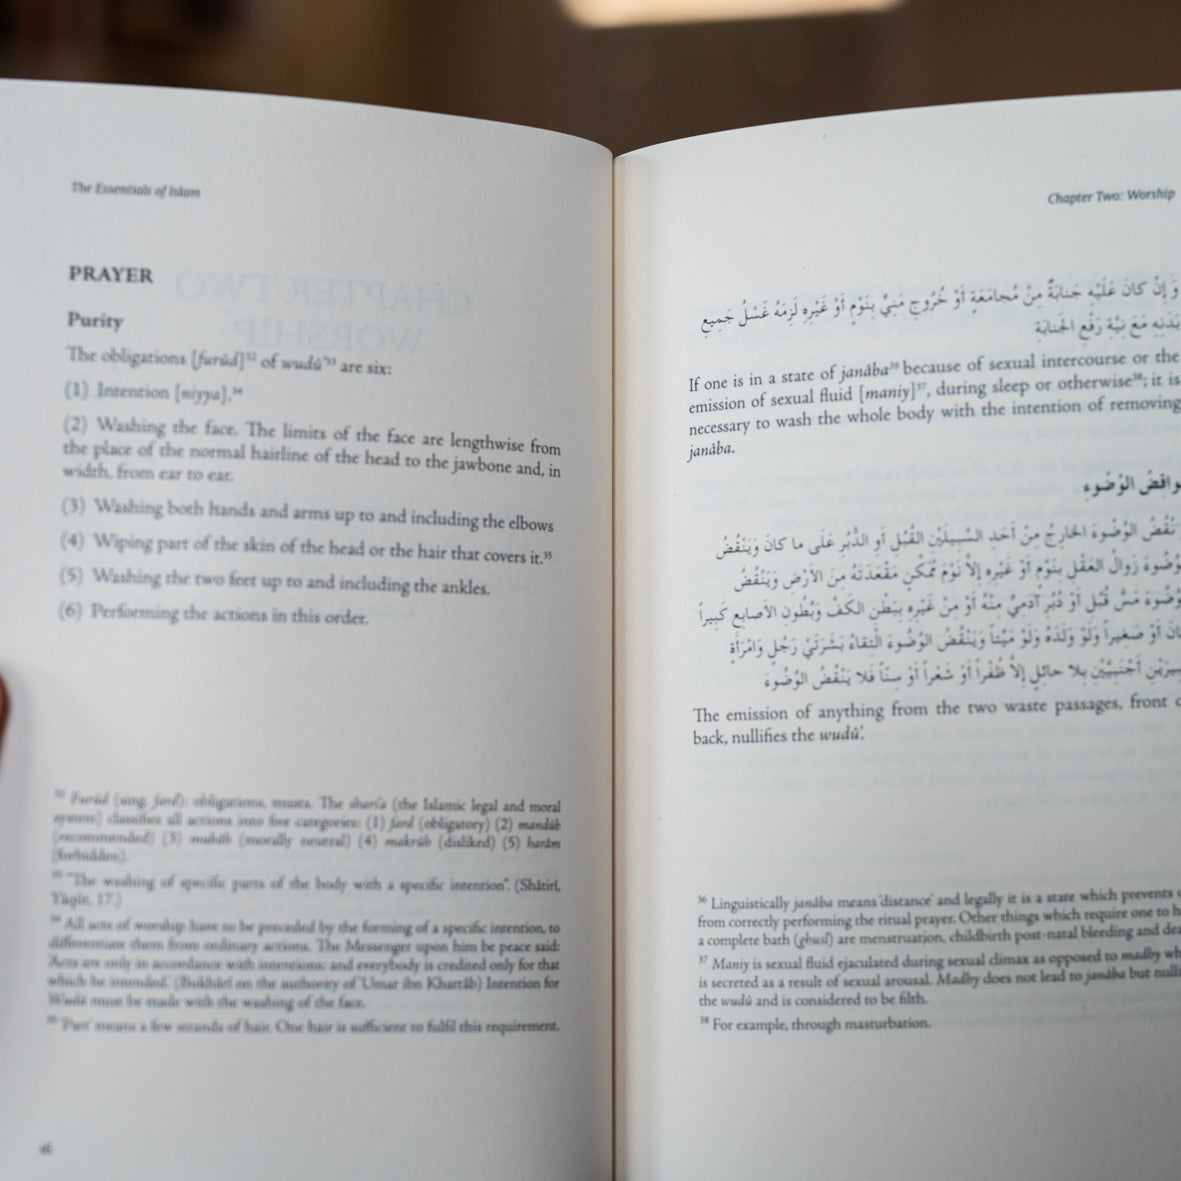 The Essentials of Islam
PRAYER
Purity
The obligations [furûd]³² of wudû’³³ are six:
(1) Intention [niyya].³⁴
(2) Washing the face. The limits of the face are lengthwise from
the place of the normal hairline of the head to the jawbone and, in
width, from ear to ear.
(3) Washing both hands and arms up to and including the elbows
(4) Wiping part of the skin of the head or the hair that covers it.³⁵
(5) Washing the two feet up to and including the ankles.
(6) Performing the actions in this order.
³² Furûd (sing. fard): obligations, musts. The sharî'a (the Islamic legal and moral
system) classifies all actions into five categories: (1) fard (obligatory) (2) mandûb
(recommended) (3) mubâh (morally neutral) (4) makrûh (disliked) (5) harâm
(forbidden).
³³ "The washing of specific parts of the body with a specific intention". (Shâtirî,
Yâqût, 17.)
³⁴ All acts of worship have to be preceded by the forming of a specific intention, to
differentiate them from ordinary actions. The Messenger upon him be peace said:
'Acts are only in accordance with intentions; and everybody is credited only for that
which he intended.' (Bukhârî on the authority of 'Umar ibn Khattâb) Intention for
Wudû must be made with the washing of the face.
³⁵ 'Part' means a few strands of hair. One hair is sufficient to fulfil this requirement.
46
Chapter Two: Worship
وَإِنْ كانَ عَلَيْهِ جَنابَةٌ مِنْ مُجامَعَةٍ أَوْ خُرُوجِ مَنِيٍّ بِنَوْمٍ أَوْ غَيْرِهِ لَزِمَهُ غَسْلُ جَمِيعِ
بَدَنِهِ مَعَ نِيَّةِ رَفْعِ الجَنابَةِ
If one is in a state of janâba³⁶ because of sexual intercourse or the
emission of sexual fluid [maniy]³⁷, during sleep or otherwise³⁸; it is
necessary to wash the whole body with the intention of removing
janâba.
الوُضُوءِ
الوُضُوءَ الخارِجُ مِنْ أَحَدِ السَّبِيلَيْنِ القُبُلِ أَوِ الدُّبُرِ عَلَى ما كانَ وَيَنْقُضُ
زَوالُ العَقْلِ بِنَوْمٍ أَوْ غَيْرِهِ إِلاَّ نَوْمَ مُمَكِّنٍ مَقْعَدَتَهُ مِنَ الأَرْضِ وَيَنْقُضُ
مَسُّ قُبُلٍ أَوْ دُبُرِ آدَمِيٍّ مِنْهُ أَوْ مِنْ غَيْرِهِ بِبَطْنِ الكَفِّ وَبُطُونِ الأَصابِعِ كَبِيراً
أَوْ صَغِيراً وَلَوْ وَلَدَهُ وَلَوْ مَيْتاً وَيَنْقُضُ الوُضُوءَ الْتِقاءُ بَشَرَتَيْ رَجُلٍ وَامْرَأَةٍ
أَجْنَبِيَّيْنِ بِلا حائِلٍ إِلاَّ ظُفْراً أَوْ شَعْراً أَوْ سِنّاً فَلا يَنْقُضُ الوُضُوءَ
The emission of anything from the two waste passages, front
back, nullifies the wudû’.
³⁶ Linguistically janâba means 'distance' and legally it is a state which prevents
from correctly performing the ritual prayer. Other things which require one to
a complete bath (ghusl) are menstruation, childbirth post-natal bleeding and
³⁷ Maniy is sexual fluid ejaculated during sexual climax as opposed to madhy
is secreted as a result of sexual arousal. Madhy does not lead to janâba but
the wudû and is considered to be filth.
³⁸ For example, through masturbation.